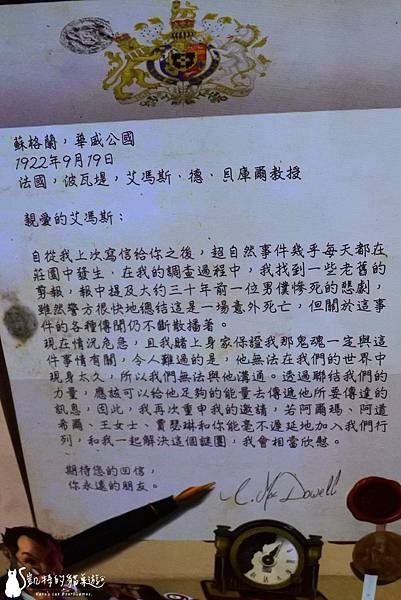 蘇格蘭，華威公國
1922年9月19日
法國，波瓦堤，艾馮斯．德．貝庫爾教授
親愛的艾馮斯：
自從我上次寫信給你之後，超自然事件幾乎每天都在
莊園中發生，在我的調查過程中，我找到一些老舊的
剪報，報中提及大約三十年前一位男僕慘死的悲劇，
雖然警方很快地總結這是一場意外死亡，但關於這事
件的各種傳聞仍不斷散播著。
現在情況危急，且我賭上身家保證我那鬼魂一定與這
件事情有關，令人難過的是，他無法在我們的世界中
現身太久，所以我們無法與他溝通。透過聯結我們的
力量，應該可以給他足夠的能量去傳遞他所要傳達的
訊息，因此，我再次重申我的邀請，若阿爾瑪、阿道
希爾、王女士、賈瑟琳和你能毫不遲延地加入我們行
列，和我一起解決這個謎團，我會相當欣慰。
期待您的回信，
你永遠的朋友。
C. Mac Dowell
凱特的貓桌遊
Kate's cat BoardGames.